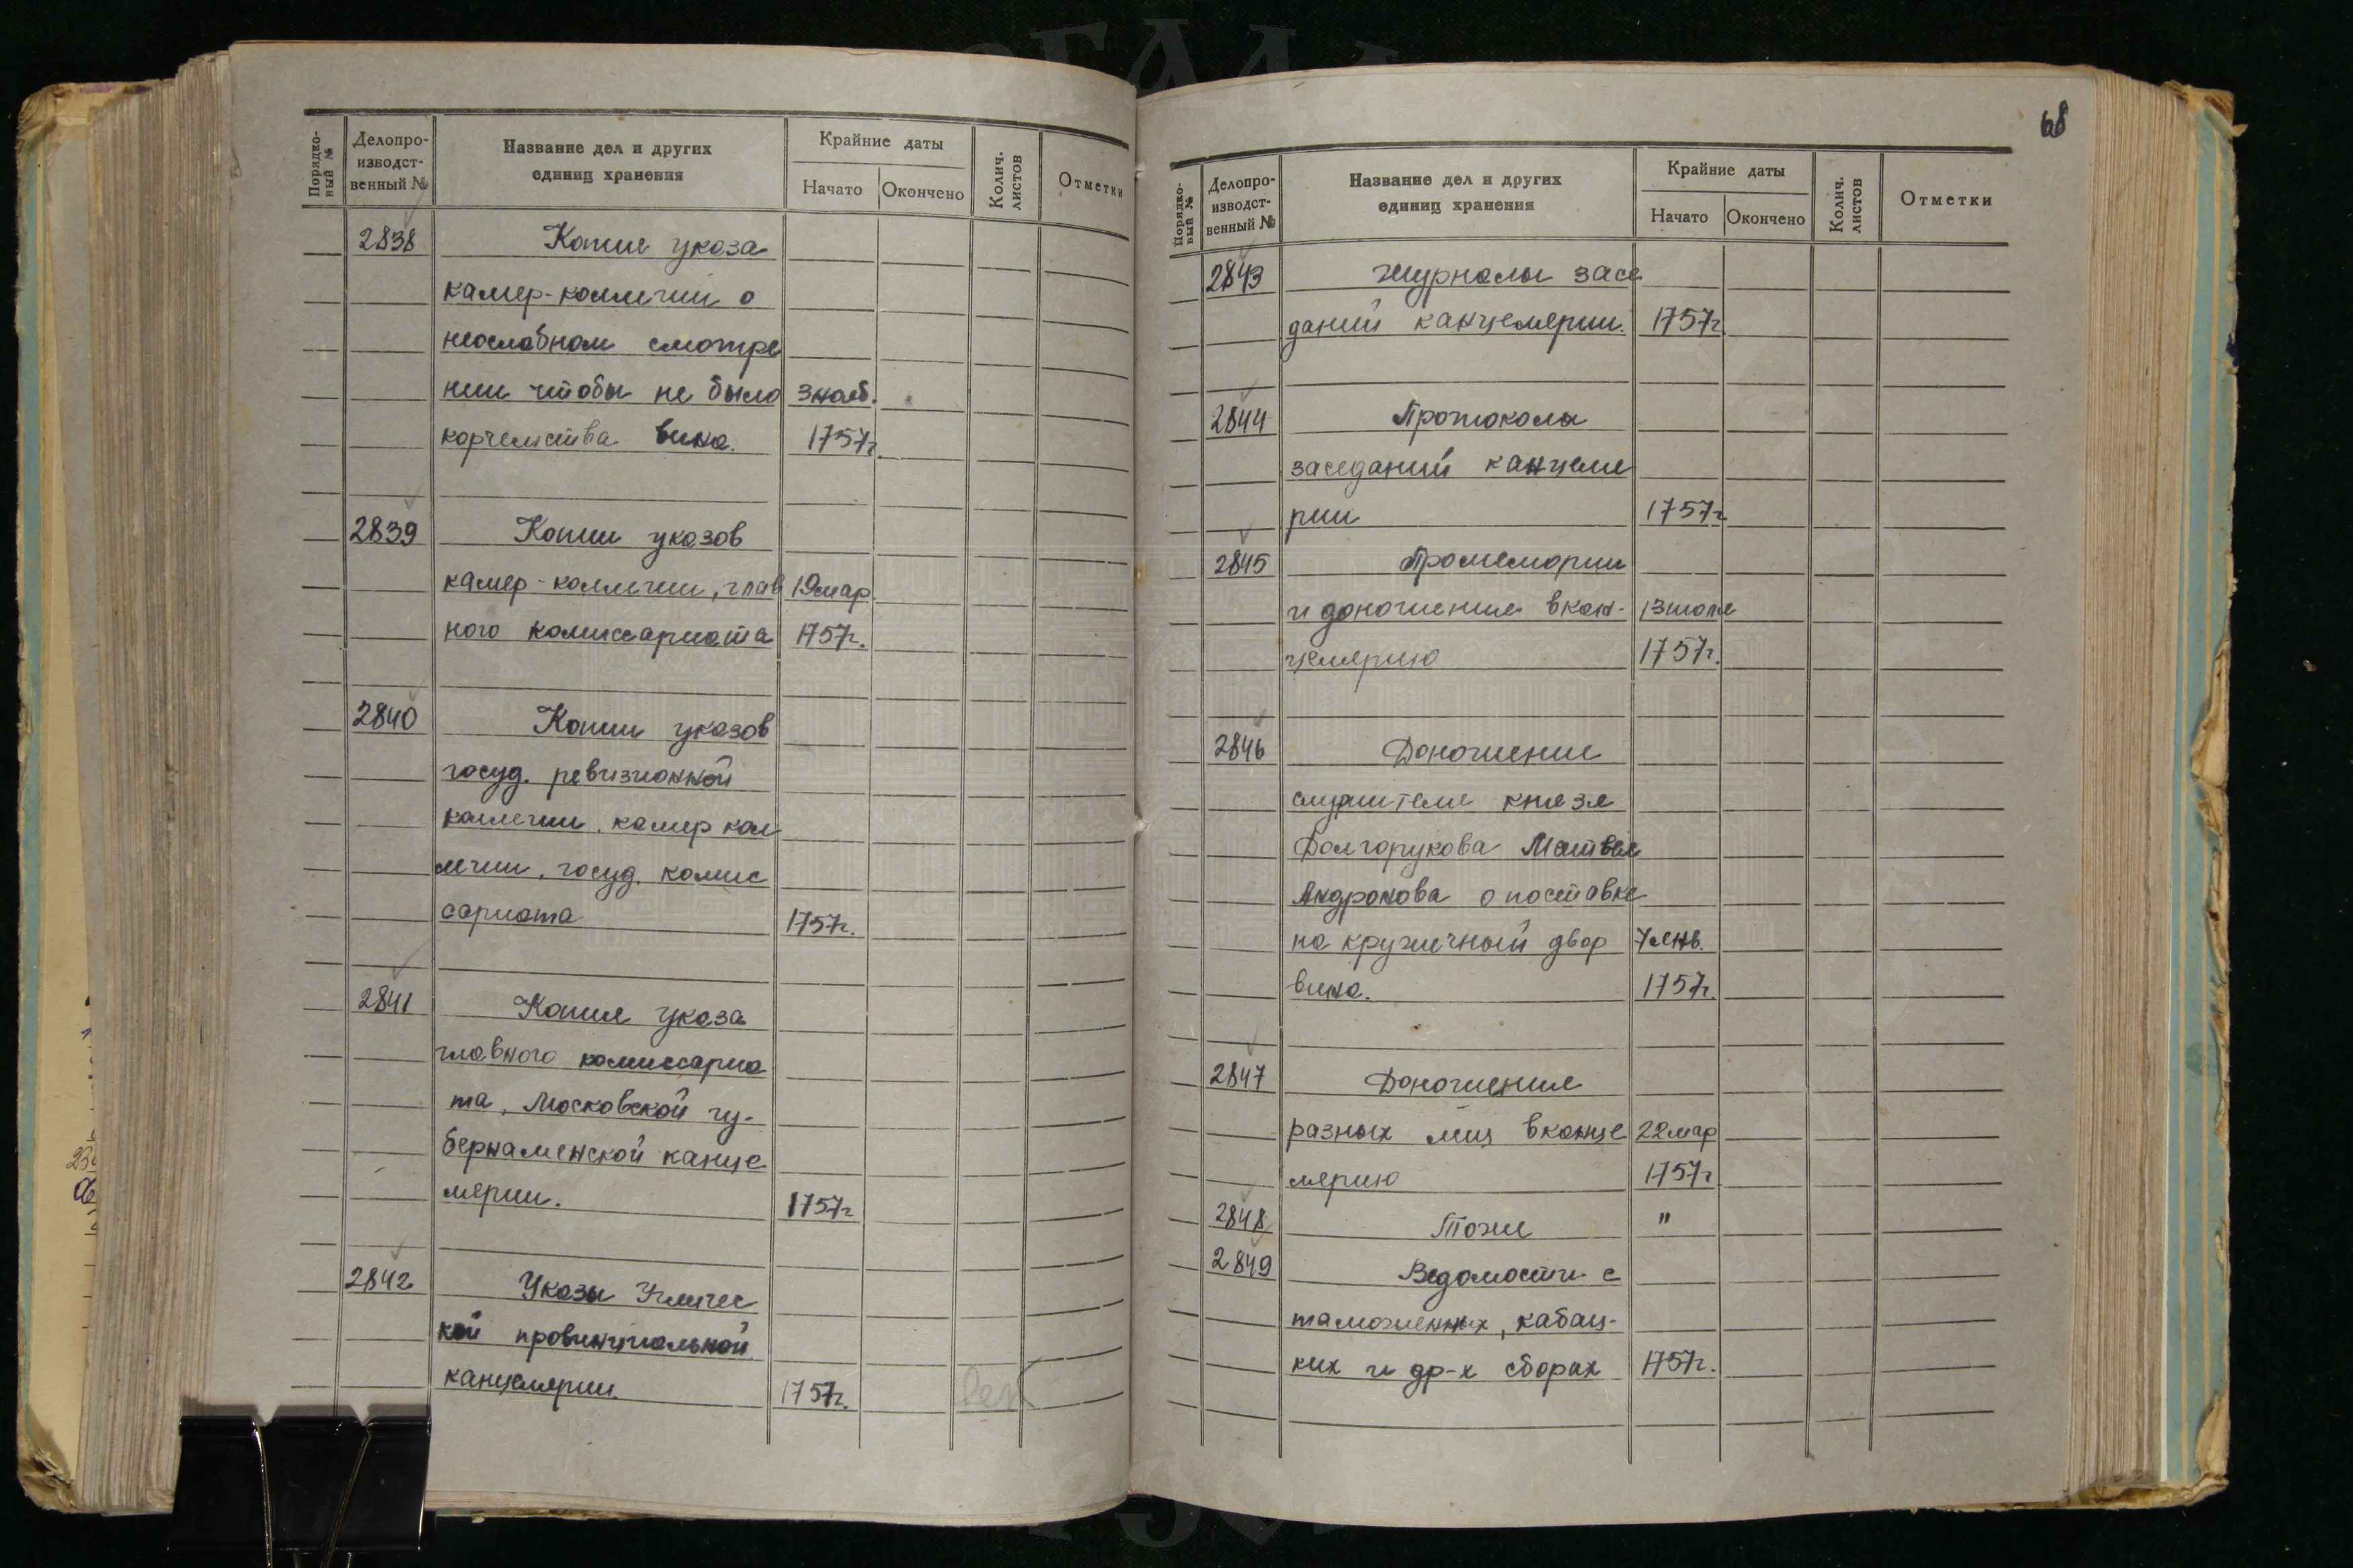 Порядко-
вый №
Делопро-
изводст-
венный №
Название дел и других
единиц хранения
Крайние даты
Начато
Окончено
Колич.
листов
Отметки
2838 Копия указа
камер-коллегии о
неослабном смотре
нии чтобы не было 3 нояб.
корчемства вина. 1757г.
2839 Копии указов
камер-коллегии, глав 19 мар
ного комиссариата 1757г.
2840 Копии указов
госуд. ревизионной
коллегии, камер кол
легии, госуд. комис
сариата 1757г.
2841 Копия указа
главного комиссариа
та, Московской гу-
бернаменской канце
лярии. 1757г
2842 Указы Угличес
кой провинциальной
канцелярии. 1757г.
68
Порядко-
вый №
Делопро-
изводст-
венный №
Название дел и других
единиц хранения
Крайние даты
Начато
Окончено
Колич.
листов
Отметки
2843 Журналы засе
даний канцелярии. 1757г
2844 Протоколы
заседаний канцеля
рии 1757г
2845 Промемории
и доношения в кан- 13 июля
целярию 1757г.
2846 Доношение
служителя князя
Долгорукова Матвея
Андронова о поставке
на кружечный двор 7 янв.
вина. 1757г.
2847 Доношения
разных лиц в канце 22 мар
лярию 1757г
2848 Тоже "
2849 Ведомости с
таможенных, кабац-
ких и др-х сборах 1757г.